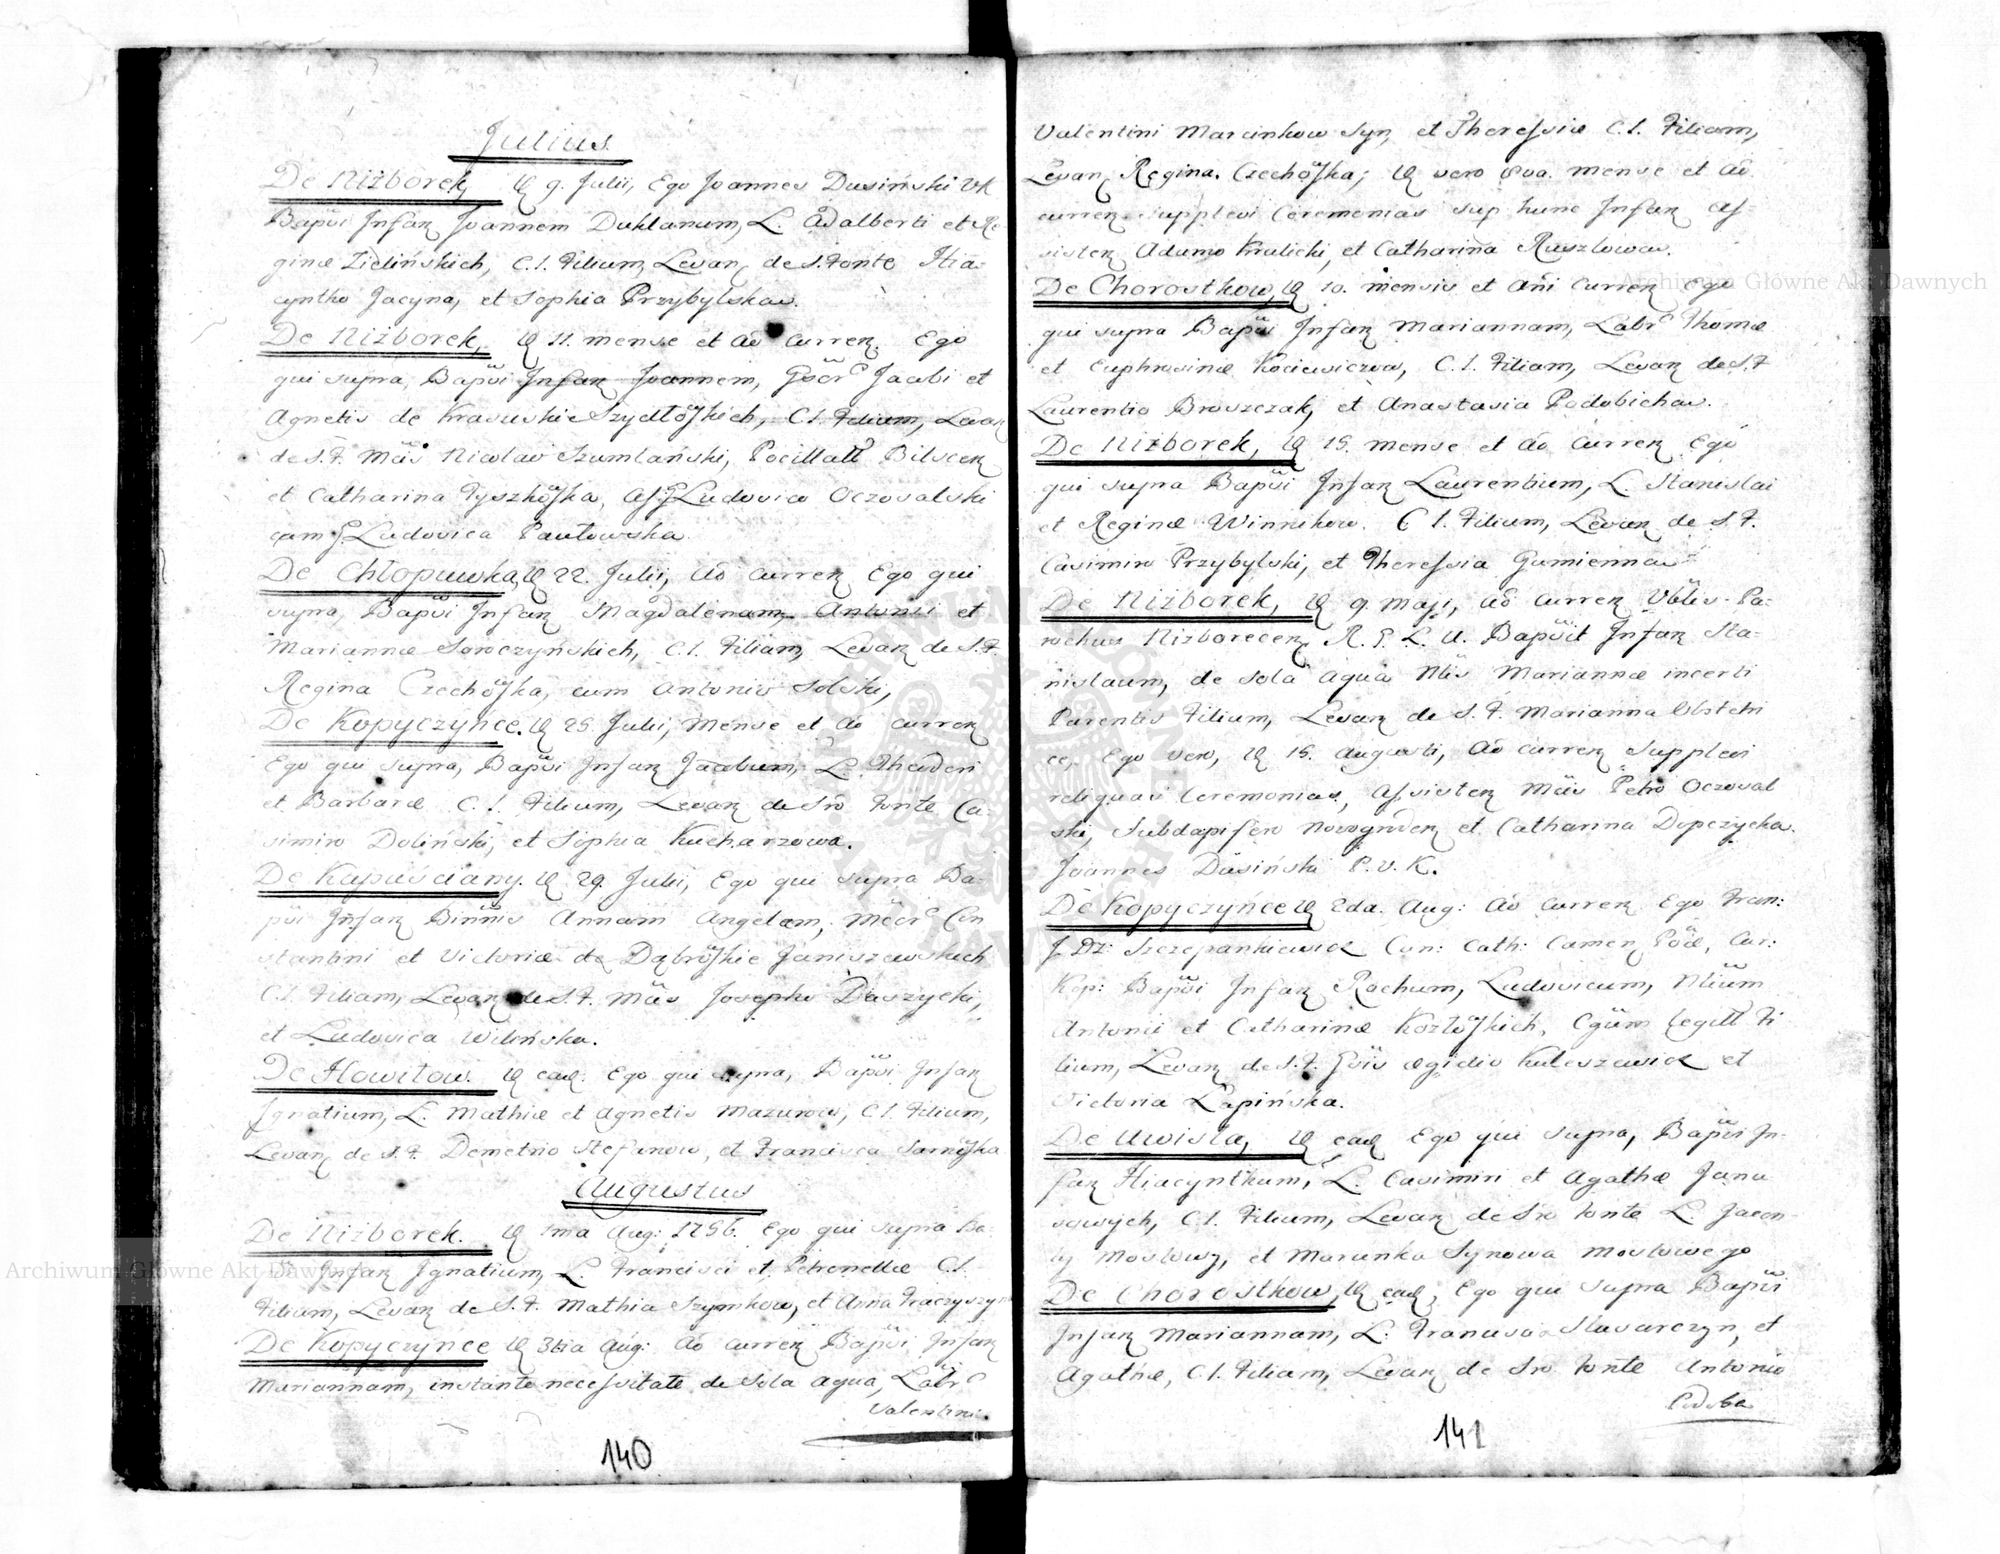 Julius
De Niżborek, 9. Julii, Ego Joannes Dusiński VK
Bapŭi Infan Joannem Duklanum, L. Adalberti et Re
ginæ Zielińskich, C.I. Filium, Levan de S. Fonte Hia-
cyntho Jacyna, et Sophia Przybylska.
De Niżborek, 11. mense et Aō curren. Ego
qui supra, Bapŭi Infan Joannem, Jacobi et
Agnetis de Krasuskie Szydłoskich, C.I. Filium, Levan
de S.F. Nicolao Szumlański, Bilscen
et Catharina Tyszkoska, Ludovico Oczosalski
cum Ludovica Pawłowska.
De Chłopuwka, 22. Julii, Aō curren Ego qui
supra, Bapŭi Infan Magdalenam, Antonii et
Mariannæ Sowczyńskich, C.I. Filiam, Levan de S.F.
Regina Czechoska, cum Antonio Solski,
De Kopyczyńce. 25 Julii, Mense et Aō curren
Ego qui supra, Bapŭi Infan Jacobum, L. Theodori
et Barbaræ C.I. Filium, Levan de Sro Fonte Ca-
simiro Doliński, et Sophia Kucharzowa.
De Kapuściany. 29. Julii, Ego qui supra Ba-
pŭi Infan Annam Angelam, Con
stantini et Victoriæ de Dąbroskie Januszewskich
C.I. Filiam, Levan de S.F. Josepho Daszycki,
et Ludovica Wilińska.
De Howiłow. Ego qui supra, Bapŭi Infan
Ignatium, L. Mathiæ et Agnetis Mazurow, C.I. Filium,
Levan de S.F. Demetrio Stefanow, et Francisca Sarnoska
Augustus
De Niżborek. 1ma Aug: 1756. Ego qui supra Ba-
pŭi Infan Ignatium, L. Francisci et Petronellæ C.I.
Filium, Levan de S.F. Mathia Szymkow, et Anna Traczyszyn
De Kopyczyńce 3tia Aug: Aō curren Bapŭi Infan
Mariannam, instante necessitate de Sola aqua, Labr
Valentini
140
Valentini Marcinkow Syn, et Theressiæ C.I. Filiam,
Levan Regina Czechoska; vero 8va. mense et Aō
curren supplevi Ceremonias sup hunc Infan As-
sisten Adamo Krulicki, et Catharina Ruszlowa.
De Chorostkow, 10. mensis et Ani curren Ego
qui supra Bapŭi Infan Mariannam, Labr Thomæ
et Euphrosinæ Kociewiczow, C.I. Filiam, Levan de S.F
Laurentio Broszczak, et Anastasia Podobicha.
De Niżborek, 15. mense et Aō curren Ego
qui supra Bapŭi Infan Laurentium, L. Stanislai
et Reginæ Winnikow. C I. Filium, Levan de S.F.
Casimiro Przybylski, et Theressia Gumienna
De Niżborek, 9. Maji, Aō curren Pa-
rochus Nizborecen, R. L. U. Bapŭit Infan Sta-
nislaum, de sola aqua Mariannæ incerti
Parentis Filium, Levan de S.F. Marianna Obstetri
ce, Ego vero, 15. Augusti, Aō curren supplevi
reliquas Ceremonias, Assisten Petro Oczosal
ski, Subdapifero Novogroden et Catharina Dopczycka.
Joannes Dusiński P.V.K.
De Kopyczyńce 2da. Aug: Aō curren Ego Fran:
Szczepankiewicz Can: Cath: Camen Cur:
Kop: Bapŭi Infan Rochum, Ludovicum,
Antonii et Catharinæ Kozłoskich, Fi
lium, Levan de S.F. Ægidio Kuleszewicz et
Victoria Łapińska.
De Uwisla, Ego qui supra, Bapŭi In-
fan Hiacynthum, L. Casimiri et Agathæ Janu
sowych, C.I. Filium, Levan de Sro Fonte L. Jacen-
ty Mostowy, et Marunka Synowa Mostowego
De Chorostkow, Ego qui supra Bapŭi
Infan Mariannam, L. Francisci Slusarczyn, et
Agathæ, C.I. Filiam, Levan de Sro Fonte Antonio
Podoba
141
Archiwum Główne Akt Dawnych
Archiwum Główne Akt Dawnych